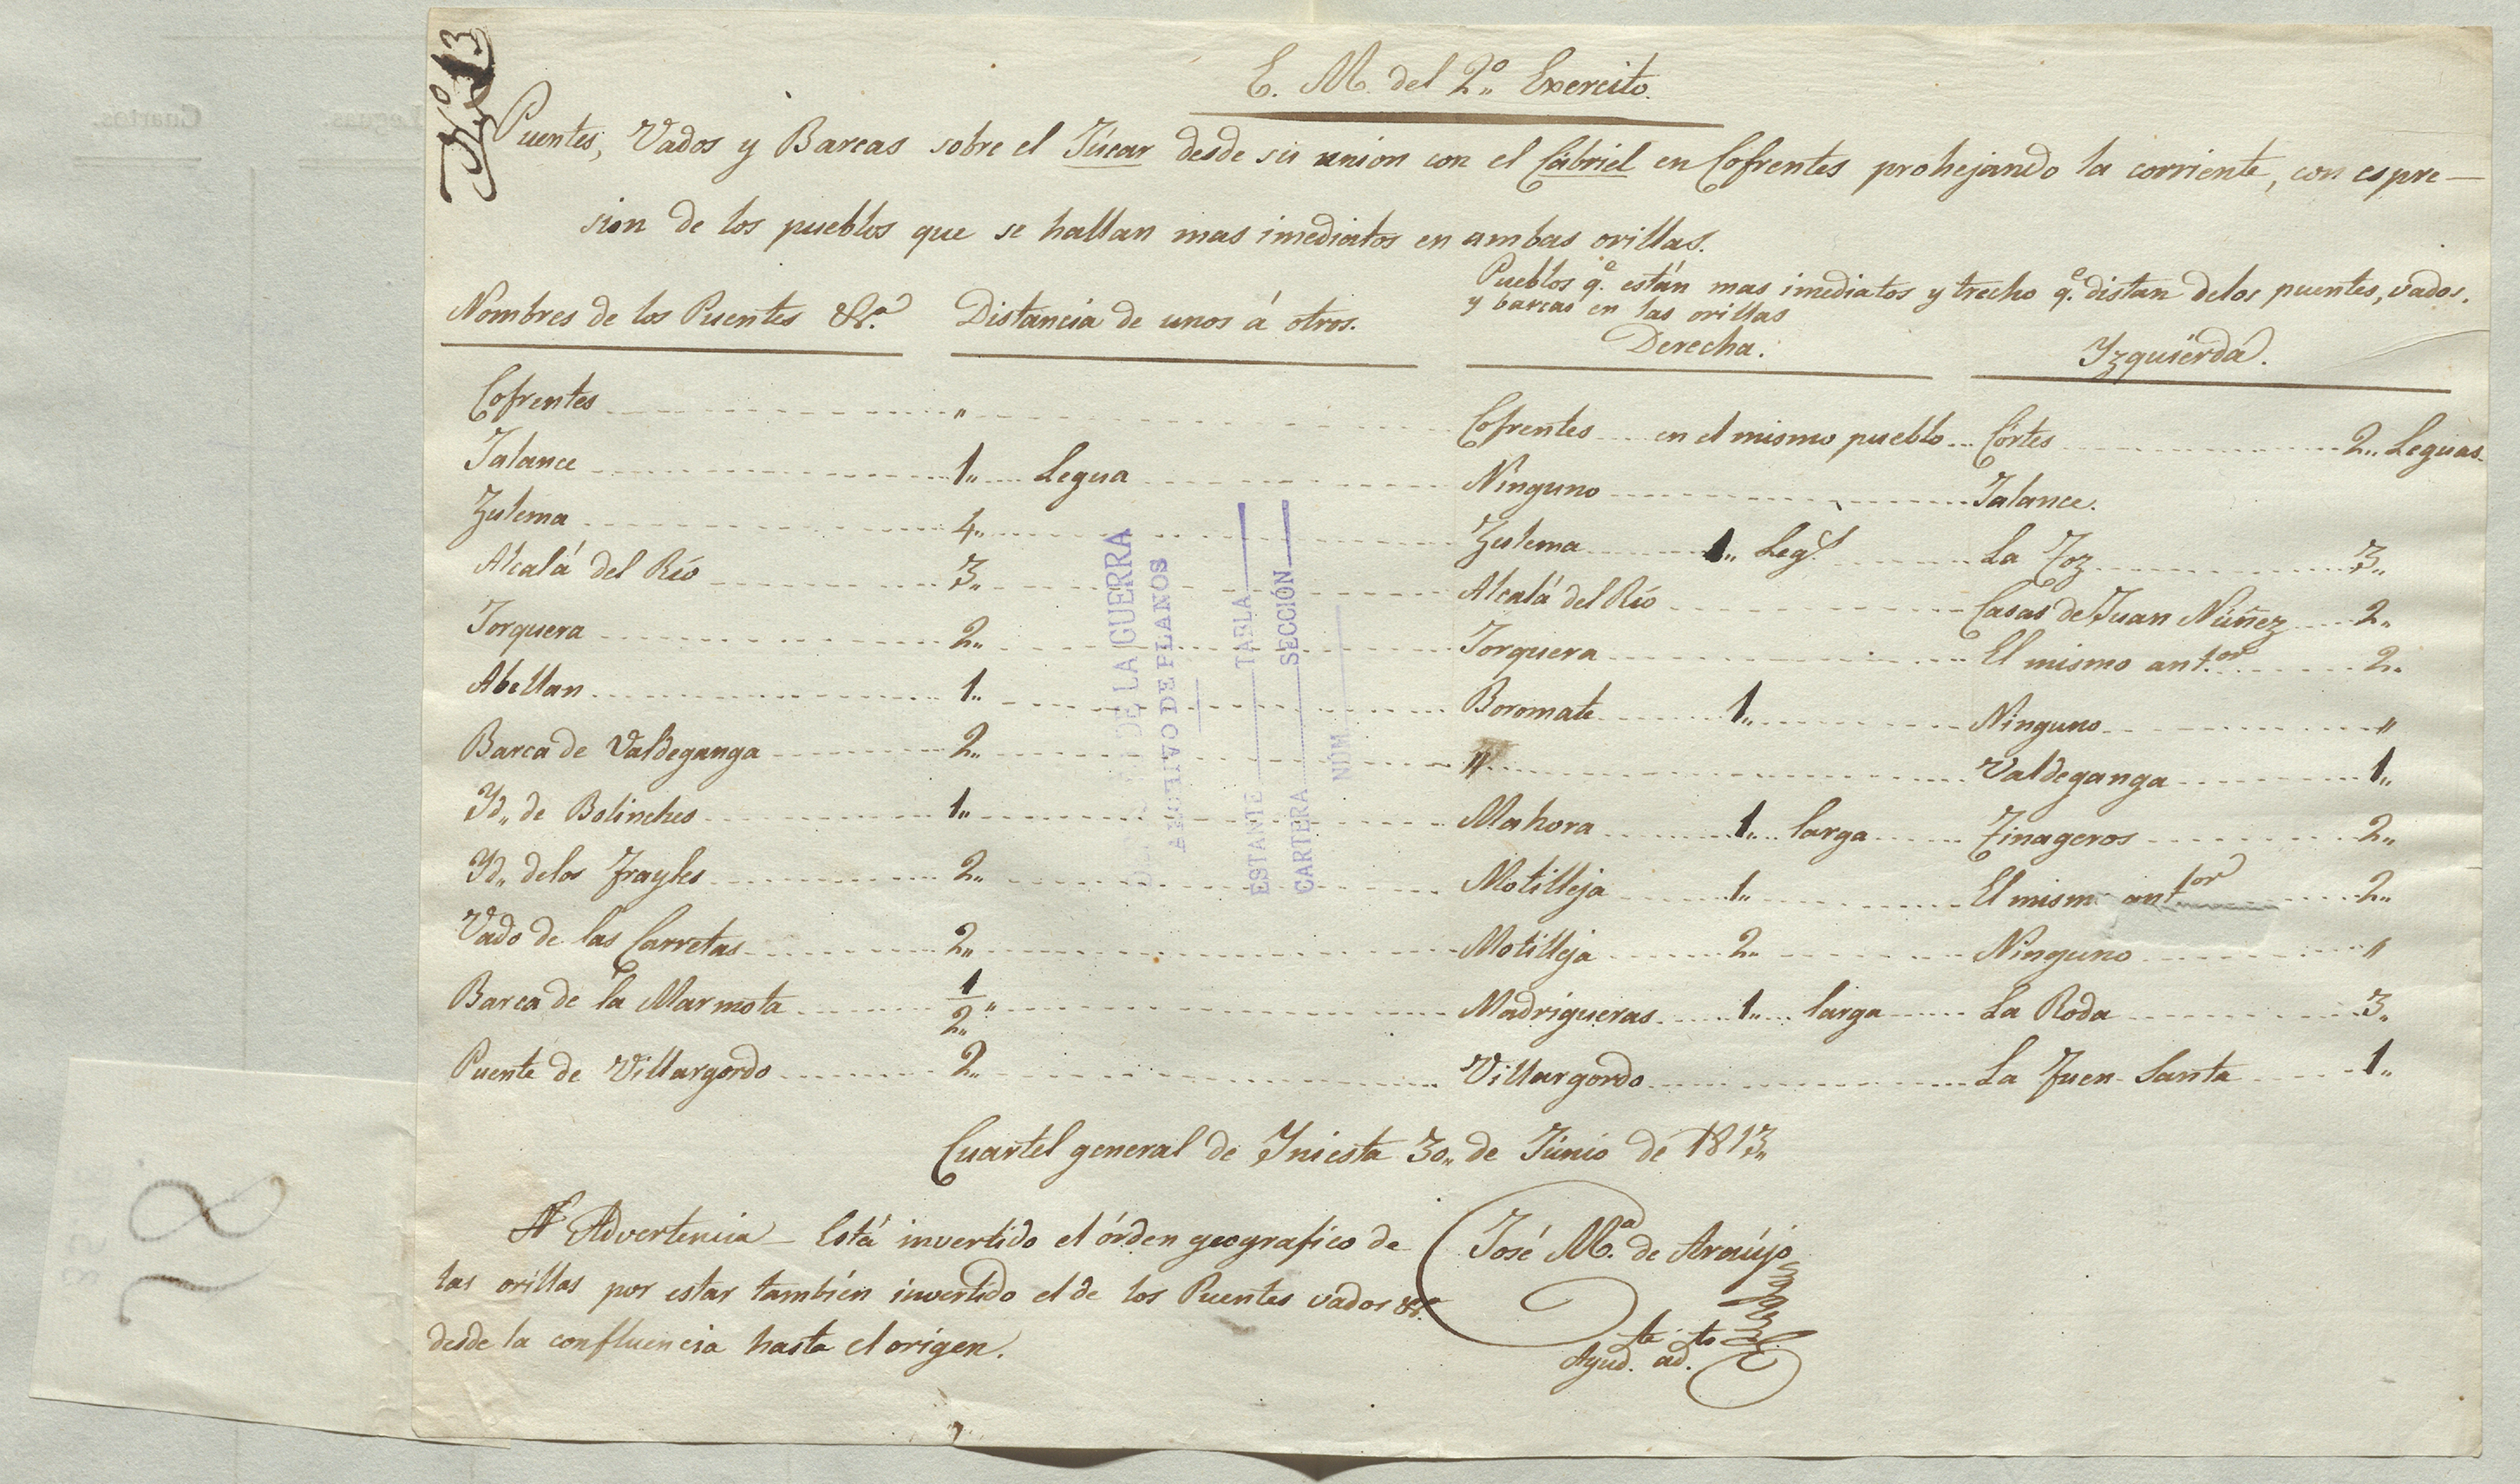 Nº 13
E. M. del 2º Exercito.
Puentes, Vados y Barcas sobre el Júcar desde su union con el Cabriel en Cofrentes prohejando la corriente, con espre-
sion de los pueblos que se hallan mas imediatos en ambas orillas.
Nombres de los Puentes &ª. Distancia de unos á otros. Pueblos q.e están mas imediatos y trecho q.e distan de los puentes, vados,
y barcas en las orillas
Derecha. Yzquierda.
Cofrentes " Cofrentes en el mismo pueblo Córtes 2,, Leguas.
Jalance 1,, Legua Ninguno Jalance.
Zulema 4,, Zulema 1,, Leg.s La Foz 3,,
Alcalá del Río 3,, Alcalá del Río Casas de Juan Núñez 2,,
Jorquera 2,, Jorquera El mismo ant.or 2,,
Abellan 1,, Boromate 1,, Ninguno "
Barca de Valdeganga 2,, " Valdeganga 1,,
Yd,, de Bolinches 1,, Mahora 1,, larga Finageros 2,,
Yd,, de los Frayles 2,, Motilleja 1,, El mism ant.or 2,,
Vado de las Carretas 2,, Motilleja 2,, Ninguno "
Barca de la Marmota 1/2,, Madrigueras 1,, larga La Roda 3,,
Puente de Villargordo 2,, Villargordo La Fuen-Santa 1,,
DE LA GUERRA
ARCHIVO DE PLANOS
ESTANTE TABLA
CARTERA SECCIÓN
NÚM
Cuartel general de Yniesta 30,, de Junio de 1813,,
Advertencia - Está invertido el órden geografico de
las orillas por estar también invertido el de los Puentes vados &ª.
desde la confluencia hasta el orígen.
José M.ª de Araújo
Ayud.te ad.to
78
Leguas. Cuartos.